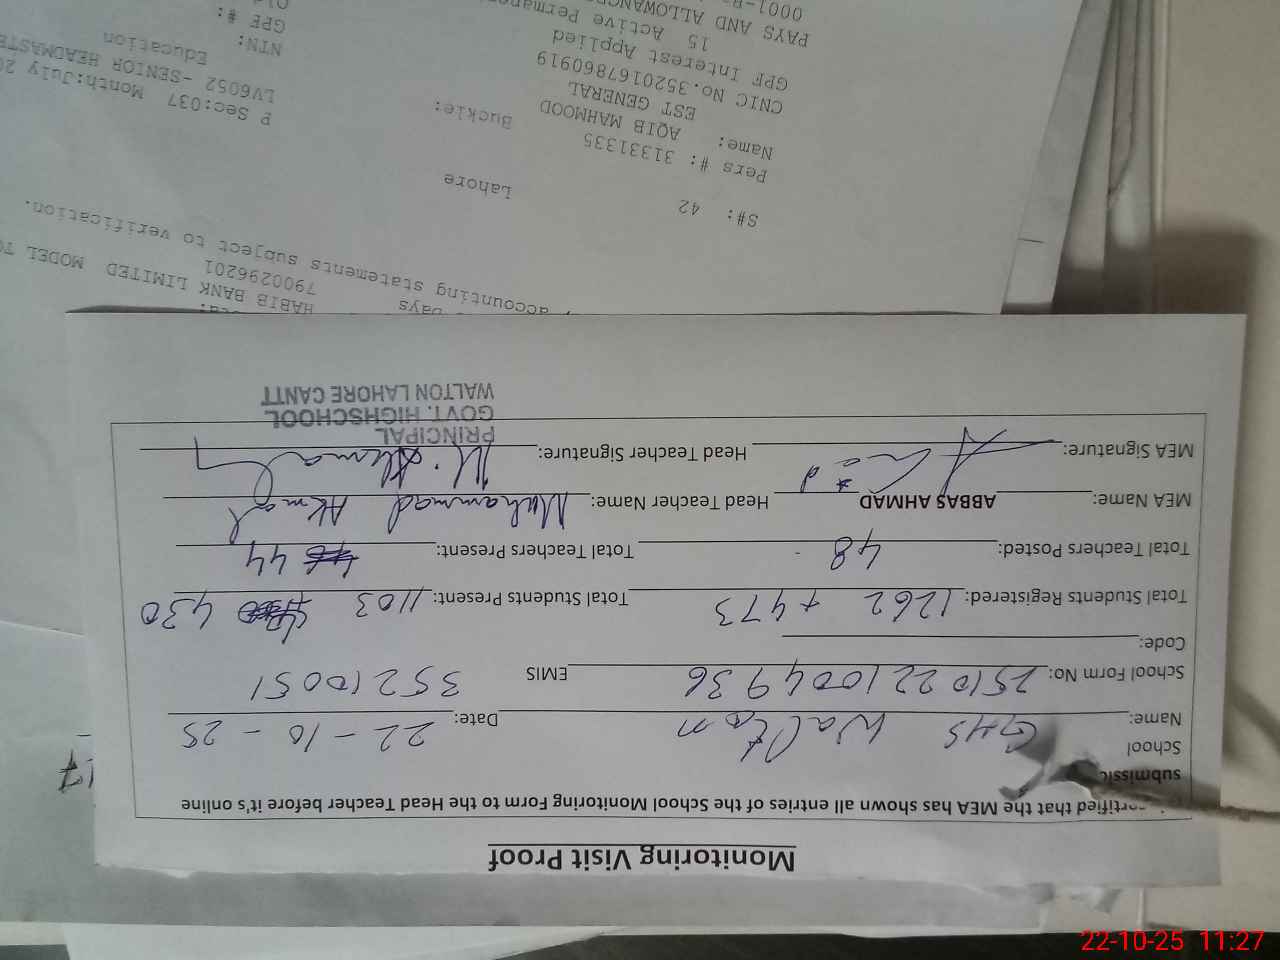 Monitoring Visit Proof
certified that the MEA has shown all entries of the School Monitoring Form to the Head Teacher before it's online
submissic
School Name: GHS Walton Date: 22-10-25
School Form No: 2510221004936 EMIS 35210051
Code:
Total Students Registered: 1262 + 473 Total Students Present: 1103 430
Total Teachers Posted: 48 Total Teachers Present: 44
MEA Name: ABBAS AHMAD Head Teacher Name: Muhammad Akmal
MEA Signature: Head Teacher Signature: M. Akmal
PRINCIPAL
GOVT. HIGHSCHOOL
WALTON LAHORE CANTT
HABIB BANK LIMITED MODEL TO
Days 7900296201
, accounting statements subject to verification.
S#: 42 Lahore
Pers #: 31331335 Buckle: P Sec:037 Month:July 20
Name: AQIB MAHMOOD LV6052 -SENIOR HEADMASTE
EST GENERAL Education
CNIC No.3520167860919 NTN:
GPF Interest Applied GPF #:
15 Active Permanen Old
PAYS AND ALLOWANCE
0001-B
17
22-10-25 11:27